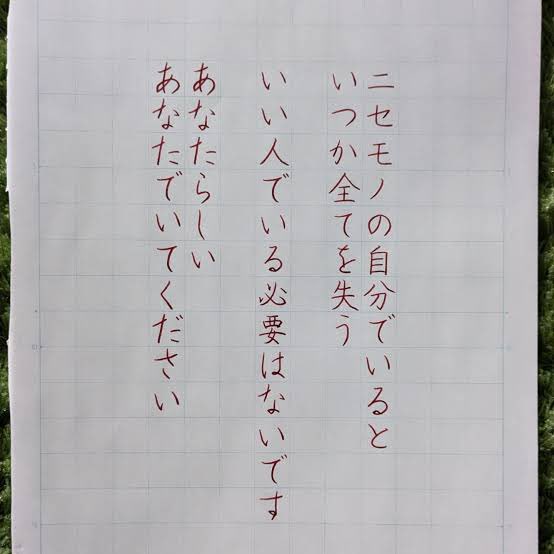 ニセモノの自分でいると
いつか全てを失う
いい人でいる必要はないです
あなたらしい
あなたでいてください